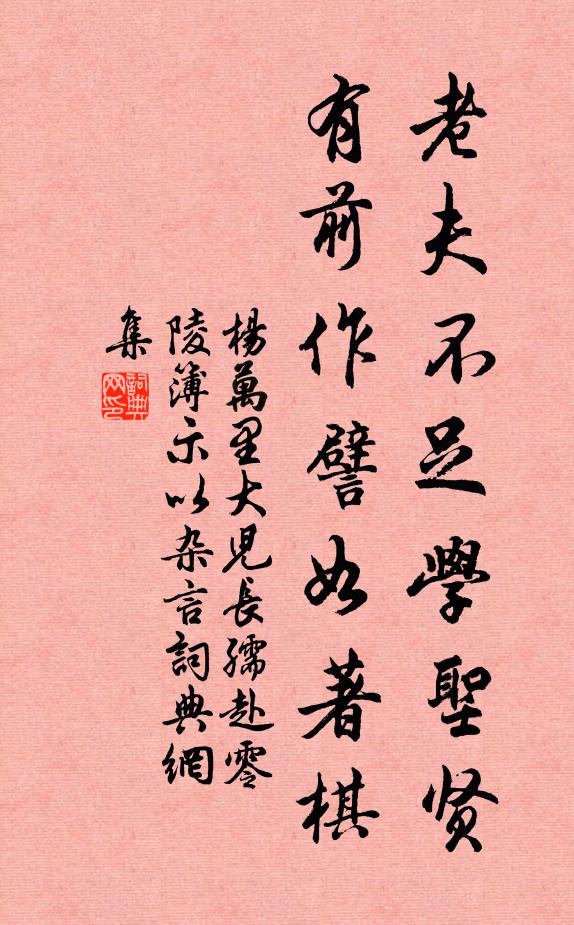 老夫不足學聖贤
有前作譬如著棋
楊萬里大児長孺赴零
陵簿示以杂言詞典網
集
詞典
网印